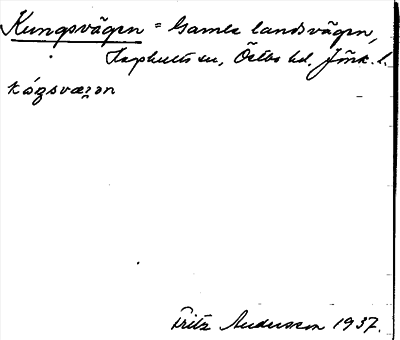 Kungsvägen = Gamla landsvägen,
sn, Östbo hd. Jönk. l.
kógsvæꝛən
Fritz Andersson 1937.